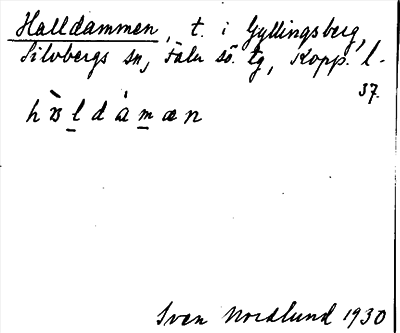 Halldammen, t. i Gyllingsberg,
Silvbergs sn, Falu sö. tg, Kopp. l.
37.
hɒ̀l̲dàm̲æn
Sven Nordlund 1930